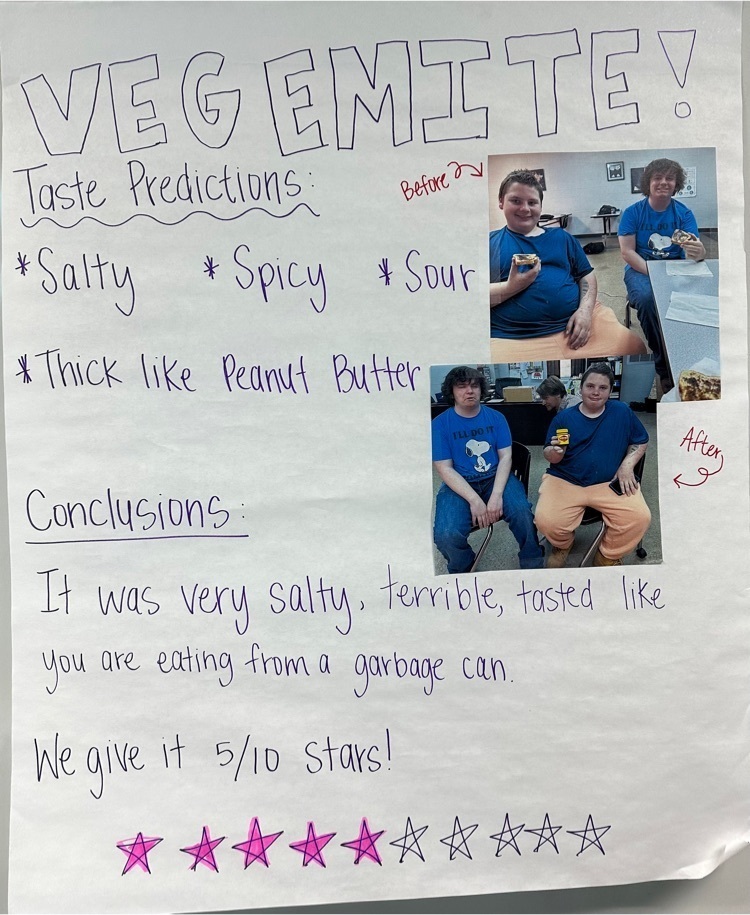 VEGEMITE!
Taste Predictions:
Before
*Salty *Spicy *Sour
*Thick like Peanut Butter
I'LL DO IT
After
Conclusions:
It was very salty, terrible, tasted like
you are eating from a garbage can.
We give it 5/10 stars!